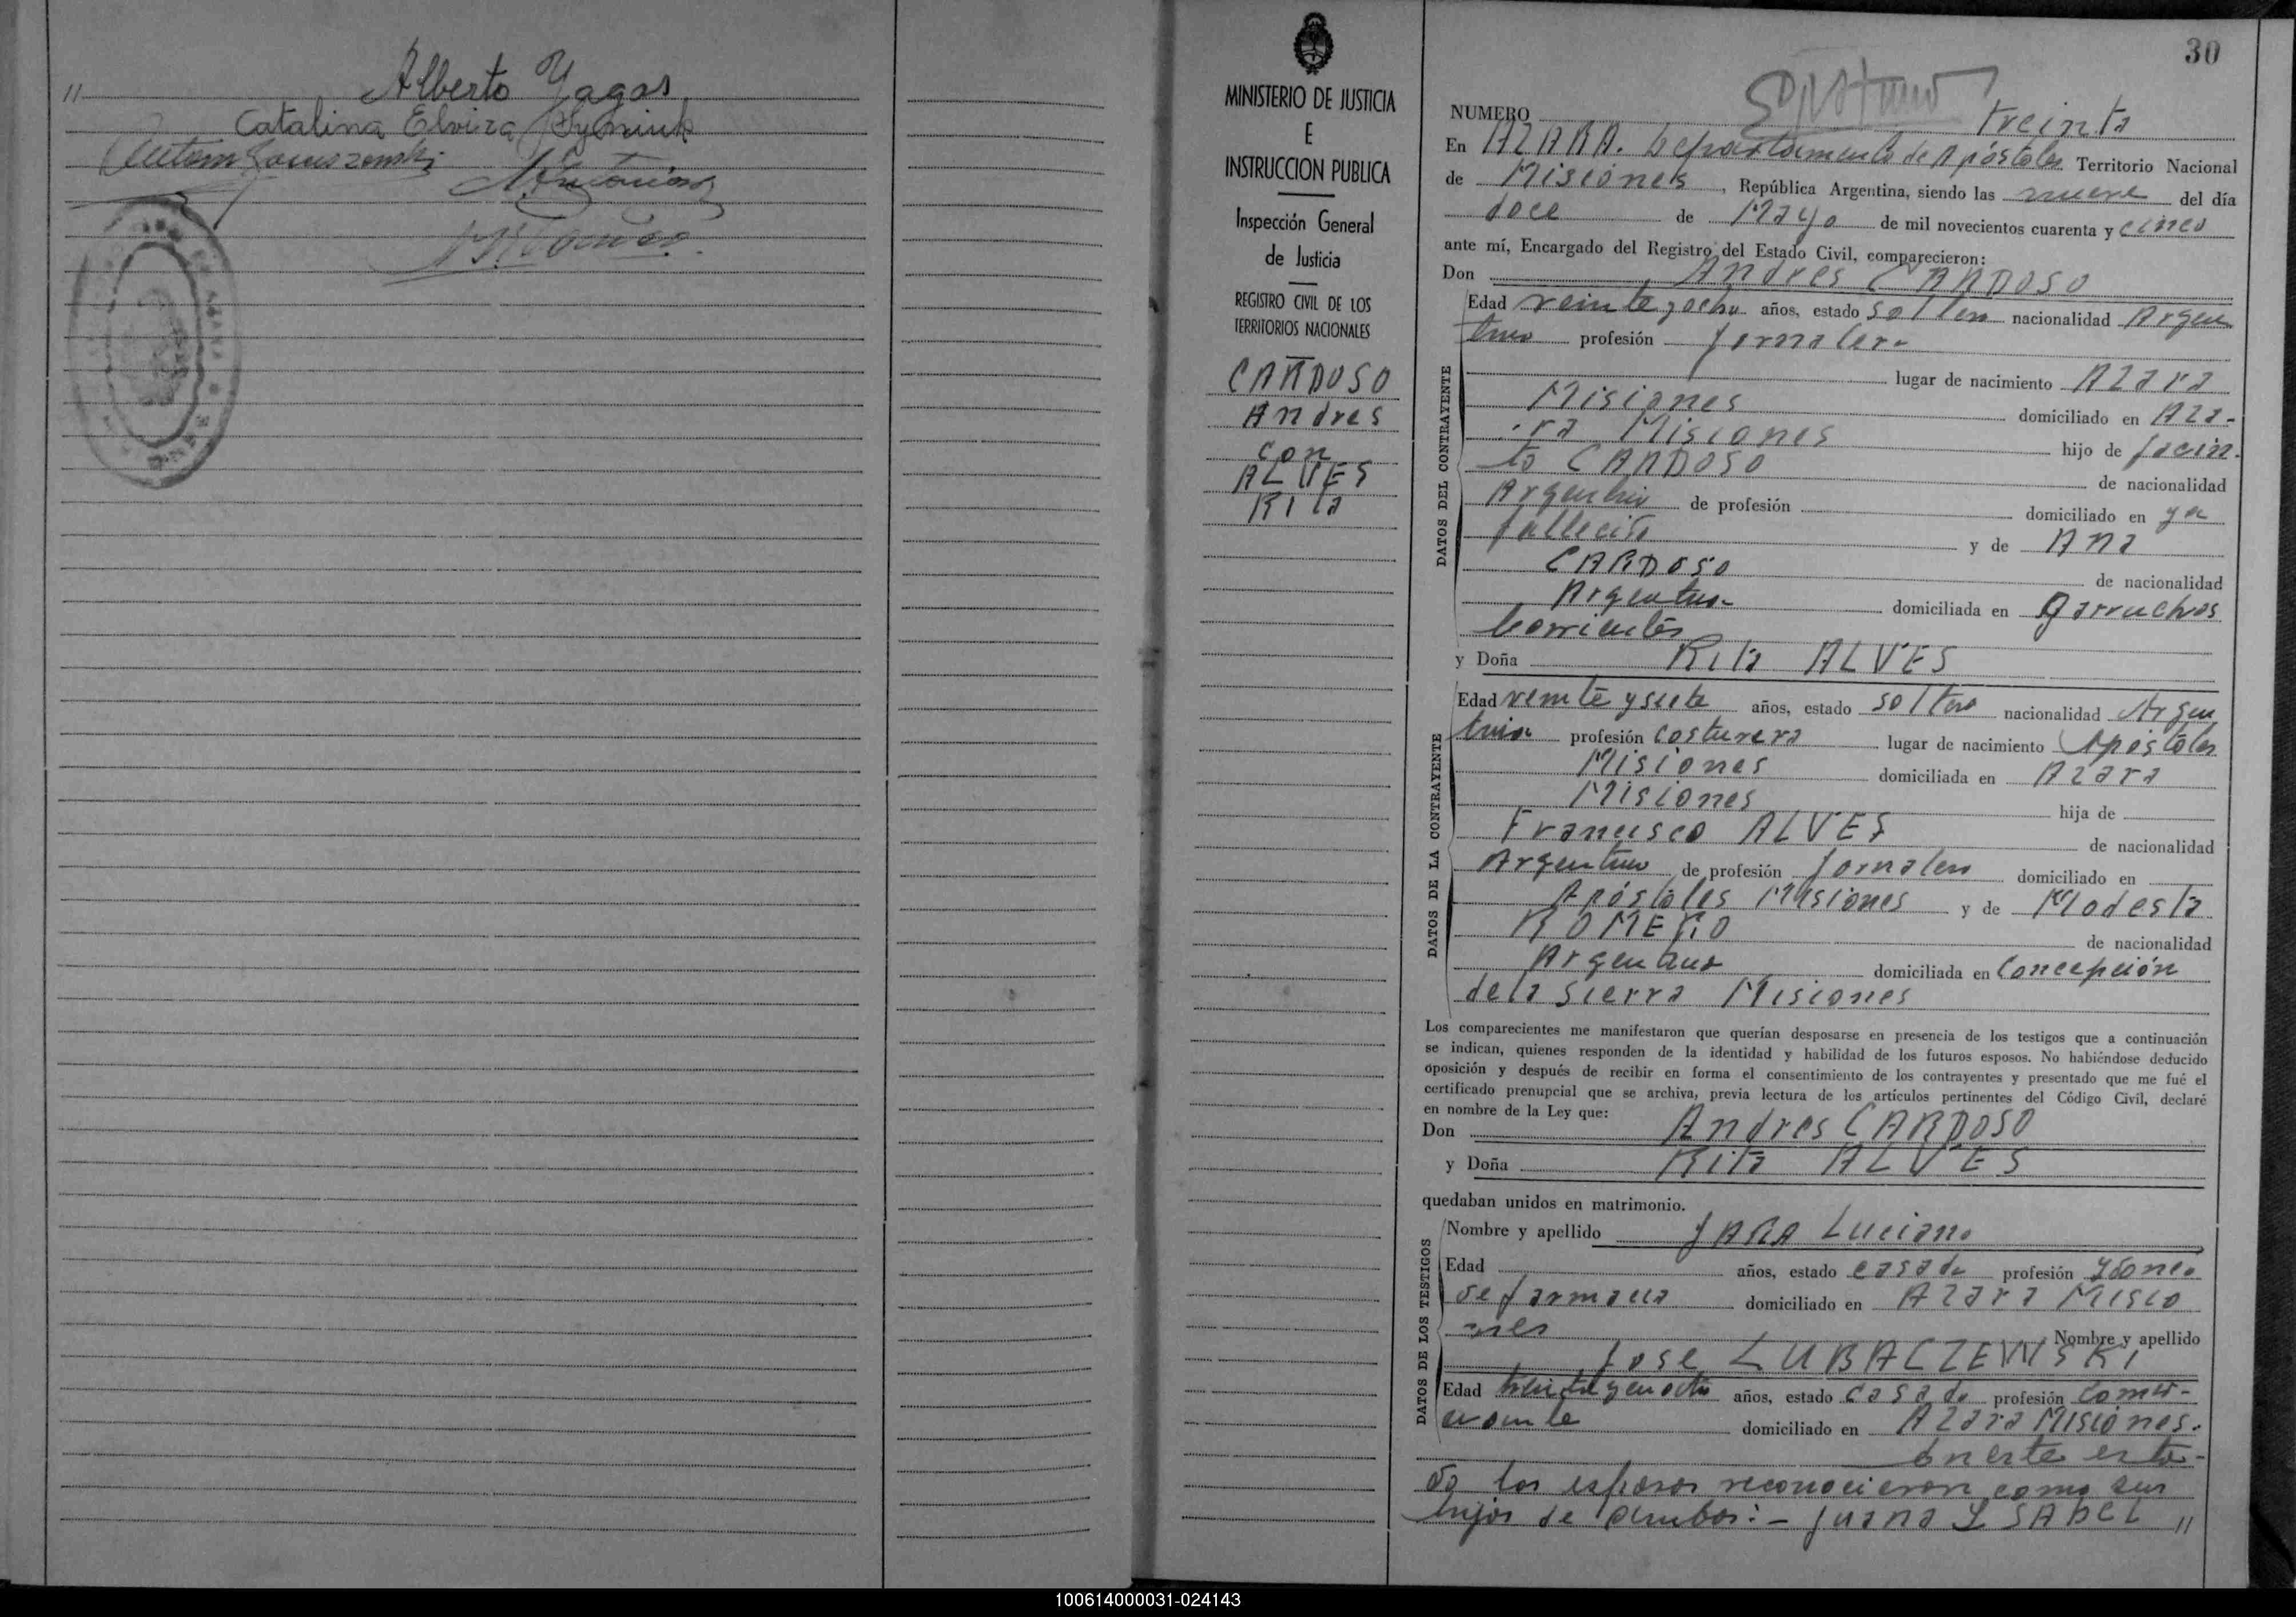 "
Alberto Yagas
Catalina Elvira
30
MINISTERIO DE JUSTICIA
E
INSTRUCCION PUBLICA
Inspección General
de Justicia
REGISTRO CIVIL DE LOS
TERRITORIOS NACIONALES
CARDOSO
Andres
con
ALVES
Rita
NUMERO treinta
En AZARA. Departamento de Apóstoles Territorio Nacional
de Misiones, República Argentina, siendo las nueve del día
doce de Mayo de mil novecientos cuarenta y cinco
ante mí, Encargado del Registro del Estado Civil, comparecieron:
Don Andres CARDOSO
DATOS DEL CONTRAYENTE
Edad veinte y ocho años, estado soltero nacionalidad Argen
tino profesión Jornalero
lugar de nacimiento Azara
Misiones domiciliado en Aza-
ra Misiones hijo de Jacin-
to CARDOSO de nacionalidad
Argentino de profesión domiciliado en ya
falleció y de Ana
CARDOSO de nacionalidad
Argentina domiciliada en Garruchos
Corrientes
y Doña Rita ALVES
DATOS DE LA CONTRAYENTE
Edad veinte y siete años, estado soltera nacionalidad Argen
tina profesión costurera lugar de nacimiento Apóstoles
Misiones domiciliada en Azara
Misiones hija de
Francisco ALVES de nacionalidad
Argentino de profesión Jornalero domiciliado en
Apóstoles Misiones y de Modesta
ROMERO de nacionalidad
Argentina domiciliada en Concepción
de la Sierra Misiones
Los comparecientes me manifestaron que querían desposarse en presencia de los testigos que a continuación
se indican, quienes responden de la identidad y habilidad de los futuros esposos. No habiéndose deducido
oposición y después de recibir en forma el consentimiento de los contrayentes y presentado que me fué el
certificado prenupcial que se archiva, previa lectura de los artículos pertinentes del Código Civil, declaré
en nombre de la Ley que:
Don Andres CARDOSO
y Doña Rita ALVES
quedaban unidos en matrimonio.
DATOS DE LOS TESTIGOS
Nombre y apellido JARA Luciano
Edad años, estado casado profesión Ydoneo
de farmacia domiciliado en Azara Misio
nes Nombre y apellido
Jose LUBACZEWSKI
Edad años, estado casado profesión comer-
ciante domiciliado en Azara Misiones.
En este esta-
do los esposos reconocieron como sus
hijos de ambos: - Juana YSABEL "
100614000031-024143